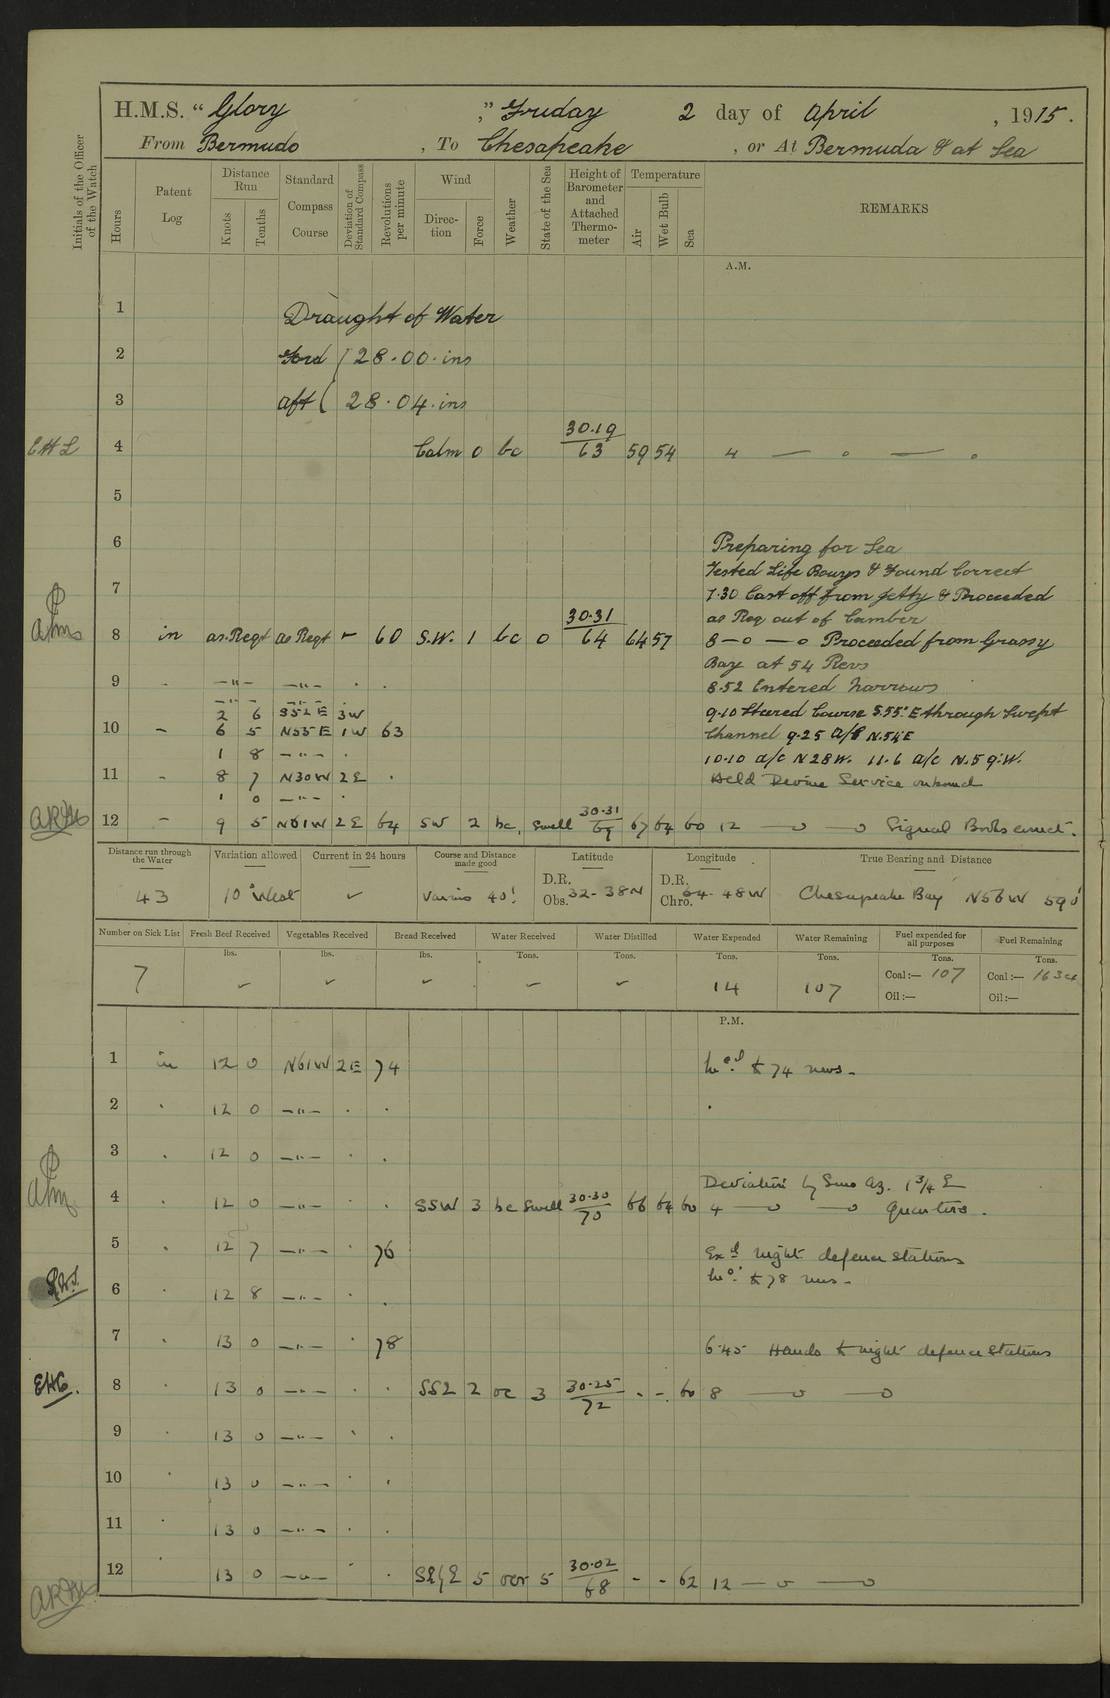 H.M.S. “ Glory ” , Friday 2 day of April , 1915.
From Bermuda , To Chesapeake , or At Bermuda & at Sea
Initials of the Officer of the Watch
Hours
Patent Log
Distance Run
Knots
Tenths
Standard Compass Course
Deviation of Standard Compass
Revolutions per minute
Wind
Direction
Force
Weather
State of the Sea
Height of Barometer and Attached Thermometer
Temperature
Air
Wet Bulb
Sea
REMARKS
A.M.
1
Draught of Water
2 Ford 28.00.ins
3 aft 28.04.ins
CHL 4 Calm 0 bc 30.19 63 59 54 4 — o — o
5
6 Preparing for Sea
Tested Life Bouys & Found Correct
7 7.30 Cast off from Jetty & Proceeded
as Req out of Camber
8 in as.Reqt as Reqt - 60 S.W. 1 bc 0 30.31 64 64 57 8 — o — o Proceeded from Grassy
Bay at 54 Revs
9 - —"— —"— . . 8.52 Entered Narrows
—"— . —"— .
2 6 S52E 3W 9.10 Steered Course S.55°E through Swept
10 - 6 5 N55E 1W 63 Channel 9.25 a/c N.54°E
1 8 —"— . 10.10 a/c N28W. 11.6 a/c N.59°W.
11 - 8 7 N30W 2E . Held Devine Service onboard
1 0 —"— .
12 - 9 5 N61W 2E 64 SW 2 bc, Swell 30.31 69 67 64 60 12 — o — o Signal Books correct.
Distance run through the Water
Variation allowed
Current in 24 hours
Course and Distance made good
Latitude
Longitude
True Bearing and Distance
43 10° West ✓ Various 40' D.R. Obs. 32-38N D.R. Chro. 64-48W Chesapeake Bay N56W 590'
Number on Sick List
Fresh Beef Received
Vegetables Received
Bread Received
Water Received
Water Distilled
Water Expended
Water Remaining
Fuel expended for all purposes
Fuel Remaining
lbs. lbs. lbs. Tons. Tons. Tons. Tons. Tons. Tons.
7 ✓ ✓ ✓ ✓ ✓ 14 107 Coal:— 107 Coal:— 1634
Oil:— Oil:—
P.M.
1 in 12 0 N61W 2E 74 Incd to 74 revs.
2 . 12 0 —"— . .
3 . 12 0 —"— . .
Deviation by Suns Az. 1 3/4 E
4 . 12 0 —"— . . SSW 3 bc Swell 30.30 70 66 64 60 4 — o — o Quarters.
5 . 12 7 —"— . 76 Exd night defence stations
Incd to 78 revs.
6 . 12 8 —"— . .
7 . 13 0 —"— . 78 6.45 Hands to night defence Stations
EHG. 8 . 13 0 —"— . . SSE 2 oc 3 30.25 72 - - 60 8 — o — o
9 . 13 0 —"— . .
10 . 13 0 —"— . .
11 . 13 0 —"— . .
12 . 13 0 —"— . . SEbyE 5 ocr 5 30.02 68 - - 62 12 — o — o